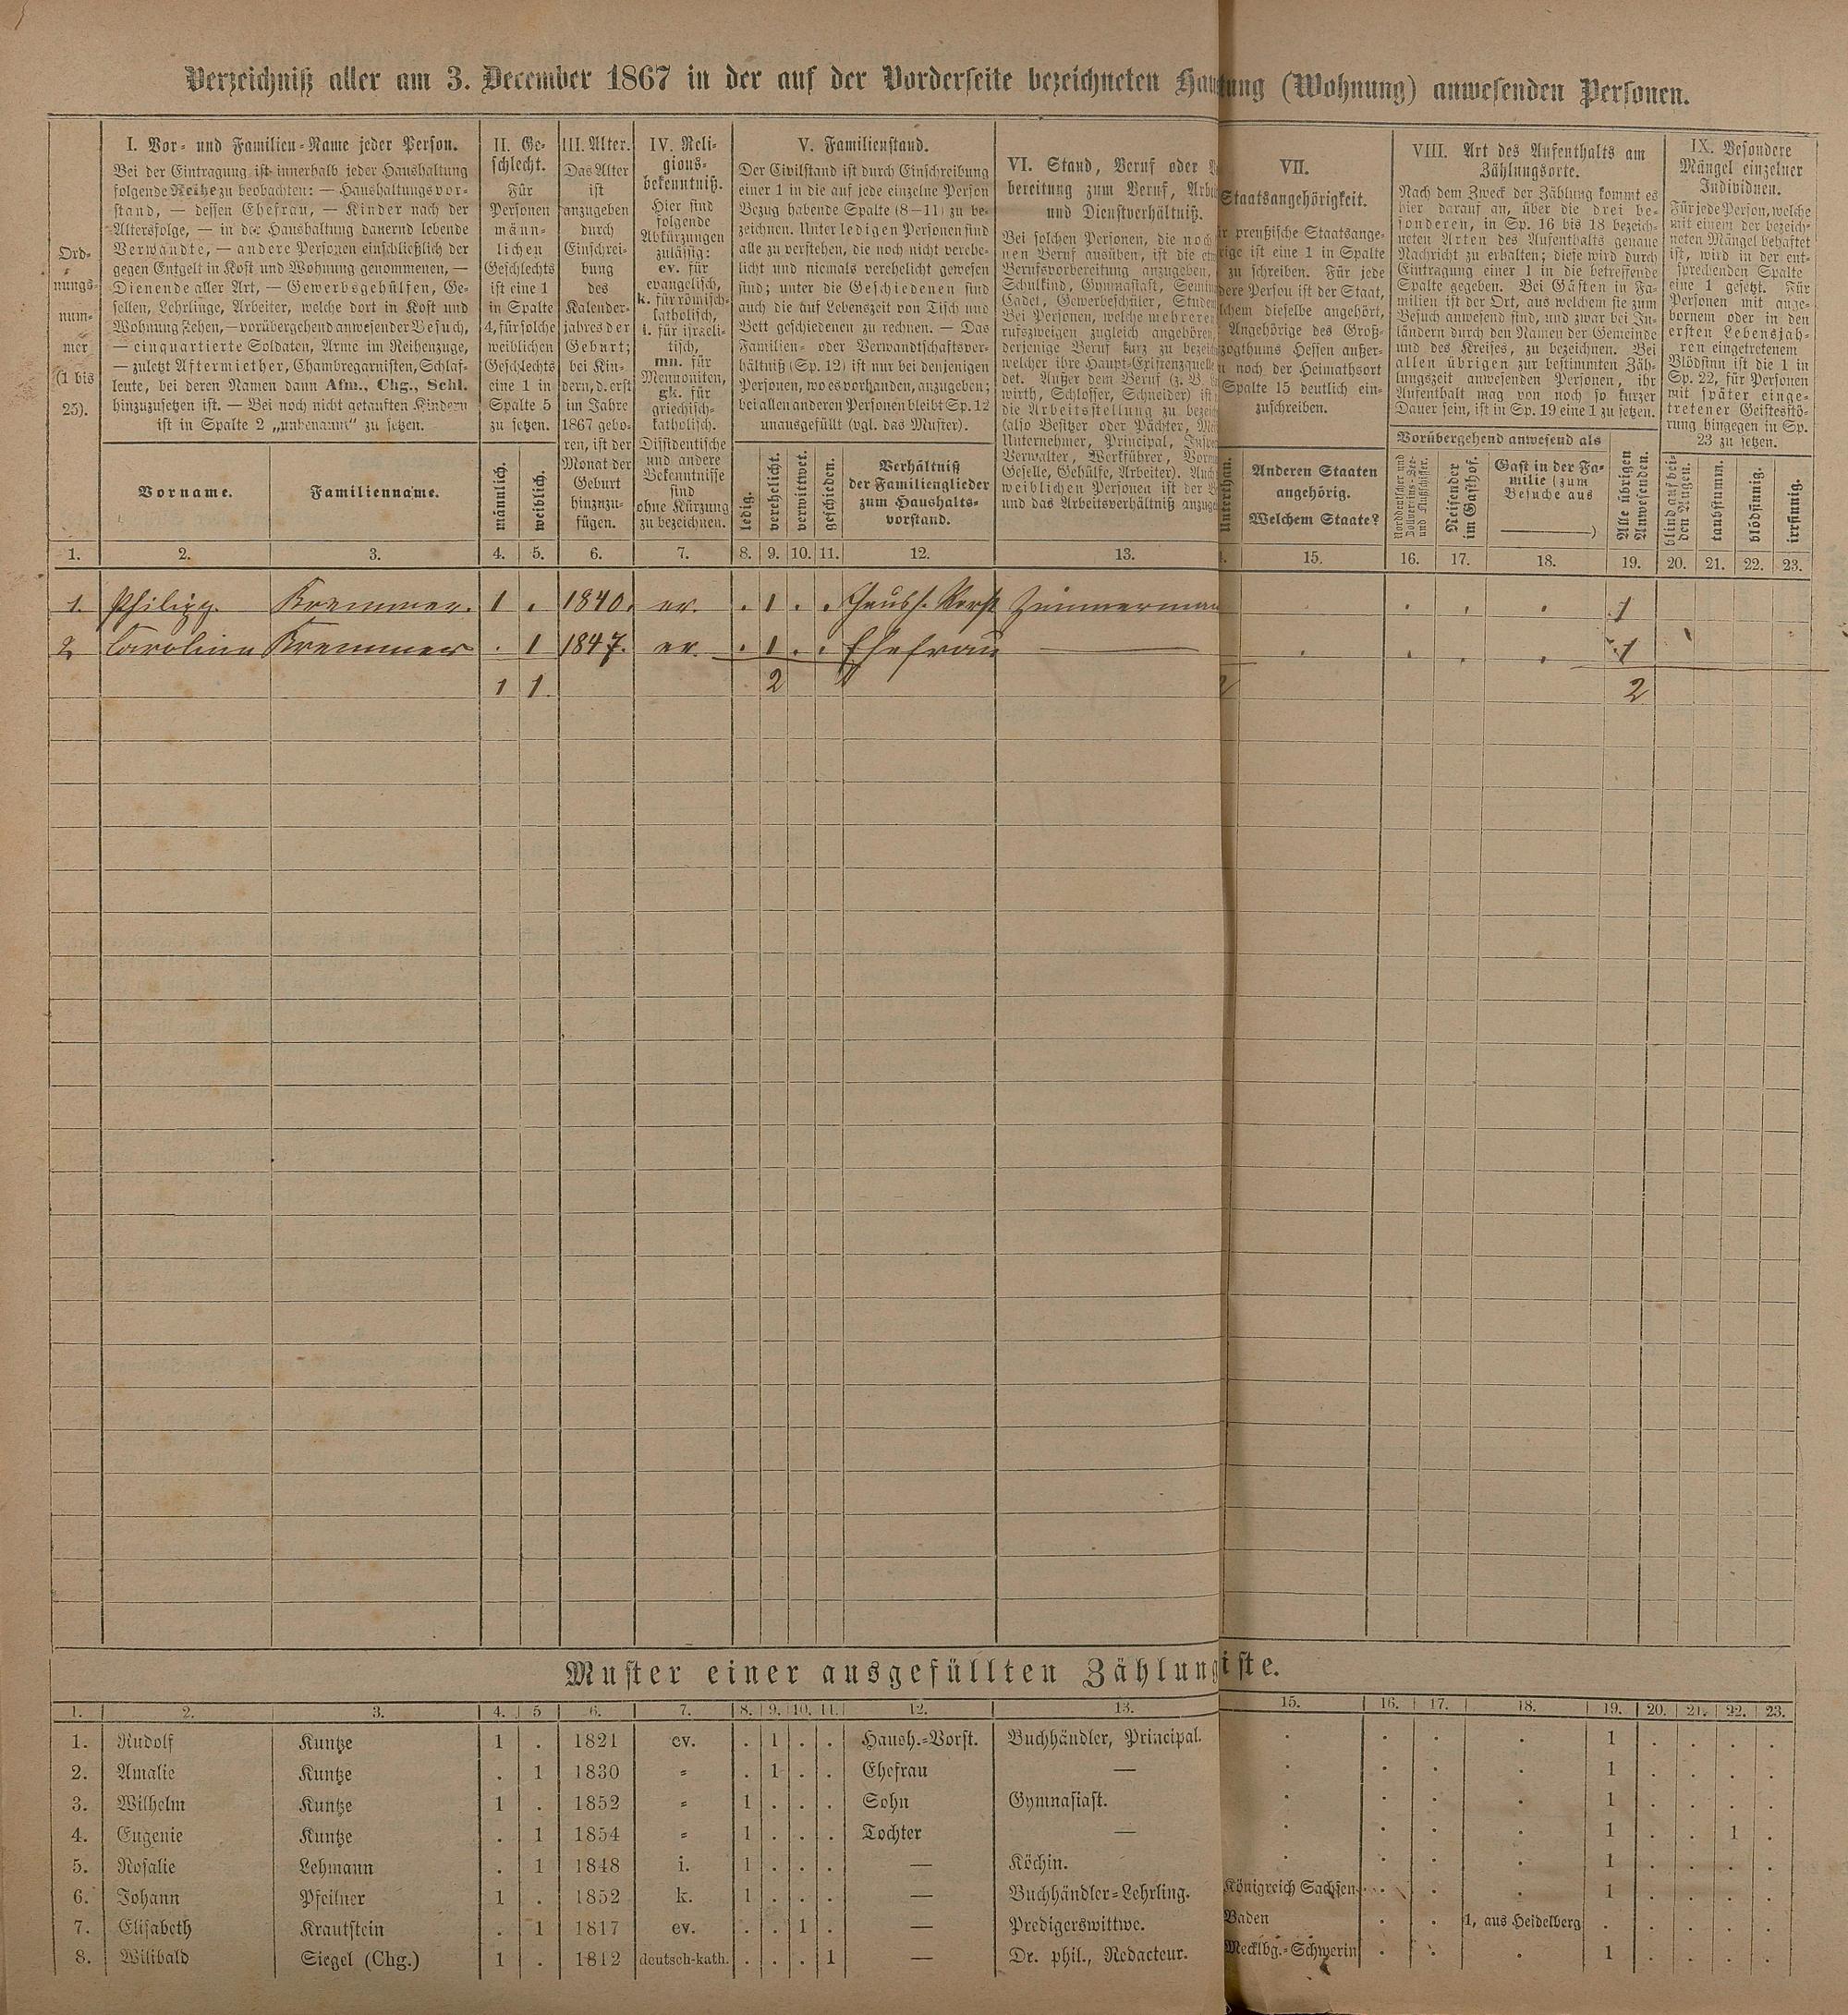 Verzeichniß aller am 3. December 1867 in der auf der Vorderseite bezeichneten Hau tung (Wohnung) anwesenden Personen.
Ord-
nungs-
num-
mer
(1 bis
25).
I. Vor- und Familien-Name jeder Person.
Bei der Eintragung ist innerhalb jeder Haushaltung
folgende Reihe zu beobachten: — Haushaltungsvor-
stand, — dessen Ehefrau, — Kinder nach der
Altersfolge, — in der Haushaltung dauernd lebende
Verwandte, — andere Personen einschließlich der
gegen Entgelt in Kost und Wohnung genommenen, —
Dienende aller Art, — Gewerbsgehülfen, Ge-
sellen, Lehrlinge, Arbeiter, welche dort in Kost und
Wohnung stehen, — vorübergehend anwesender Besuch,
— einquartierte Soldaten, Arme im Reihenzuge,
— zuletzt Aftermiether, Chambregarnisten, Schlaf-
leute, bei deren Namen dann Afm., Chg., Schl.
hinzuzusetzen ist. — Bei noch nicht getauften Kindern
ist in Spalte 2 „unbenannt“ zu setzen.
Vorname.
Familienname.
II. Ge-
schlecht.
Für
Personen
männ-
lichen
Geschlechts
ist eine 1
in Spalte
4, für solche
weiblichen
Geschlechts
eine 1 in
Spalte 5
zu setzen.
männlich.
weiblich.
III. Alter.
Das Alter
ist
anzugeben
durch
Einschrei-
bung
des
Kalender-
jahres der
Geburt;
bei Kin-
dern, d. erst
im Jahre
1867 gebo-
ren, ist der
Monat der
Geburt
hinzuzu-
fügen.
IV. Reli-
gions-
bekenntniß.
Hier sind
folgende
Abkürzungen
zulässig:
ev. für
evangelisch,
k. für römisch-
katholisch,
i. für israeli-
tisch,
mn. für
Mennoniten,
gk. für
griechisch-
katholisch.
Dissidentische
und andere
Bekenntnisse
sind
ohne Kürzung
zu bezeichnen.
V. Familienstand.
Der Civilstand ist durch Einschreibung
einer 1 in die auf jede einzelne Person
Bezug habende Spalte (8—11) zu be-
zeichnen. Unter ledigen Personen sind
alle zu verstehen, die noch nicht verehe-
licht und niemals verehelicht gewesen
sind; unter die Geschiedenen sind
auch die auf Lebenszeit von Tisch und
Bett geschiedenen zu rechnen. — Das
Familien- oder Verwandtschaftsver-
hältniß (Sp. 12) ist nur bei denjenigen
Personen, wo es vorhanden, anzugeben;
bei allen anderen Personen bleibt Sp. 12
unausgefüllt (vgl. das Muster).
ledig.
verehelicht.
verwittwet.
geschieden.
Verhältniß
der Familienglieder
zum Haushalts-
vorstand.
VI. Stand, Beruf oder
bereitung zum Beruf,
und Dienstverhältniß.
Bei solchen Personen, die noch
nen Beruf ausüben, ist die
Berufsvorbereitung anzugeben,
Schulkind, Gymnasiast,
Cadet, Gewerbeschüler,
Bei Personen, welche mehreren
rufszweigen zugleich angehören,
derjenige Beruf kurz zu
welcher ihre Haupt-Existenzquelle
det. Außer dem Beruf (z. B.
wirth, Schlosser, Schneider) ist
die Arbeitsstellung zu
(also Besitzer oder Pächter,
Unternehmer, Principal,
Verwalter, Werkführer,
Geselle, Gehülfe, Arbeiter).
weiblichen Personen ist der
und das Arbeitsverhältniß
VII.
Staatsangehörigkeit.
preußische Staatsange-
ist eine 1 in Spalte
zu schreiben. Für jede
Person ist der Staat,
dieselbe angehört,
Angehörige des Groß-
Hessen außer-
noch der Heimathsort
Spalte 15 deutlich ein-
zuschreiben.
Unterthan.
Anderen Staaten
angehörig.
Welchem Staate?
VIII. Art des Aufenthalts am
Zählungsorte.
Nach dem Zweck der Zählung kommt es
hier darauf an, über die drei be-
sonderen, in Sp. 16 bis 18 bezeich-
neten Arten des Aufenthalts genaue
Nachricht zu erhalten; diese wird durch
Eintragung einer 1 in die betreffende
Spalte gegeben. Bei Gästen in Fa-
milien ist der Ort, aus welchem sie zum
Besuch anwesend sind, und zwar bei In-
ländern durch den Namen der Gemeinde
und des Kreises, zu bezeichnen. Bei
allen übrigen zur bestimmten Zäh-
lungszeit anwesenden Personen, ihr
Aufenthalt mag von noch so kurzer
Dauer sein, ist in Sp. 19 eine 1 zu setzen.
Vorübergehend anwesend als
Norddeutscher und
Zollvereins-See-
und Flußschiffer.
Reisender
im Gasthof.
Gast in der Fa-
milie (zum
Besuche aus
)
Alle übrigen
Anwesenden.
IX. Besondere
Mängel einzelner
Individuen.
Für jede Person, welche
mit einem der bezeich-
neten Mängel behaftet
ist, wird in der ent-
sprechenden Spalte
eine 1 gesetzt. Für
Personen mit ange-
bornem oder in den
ersten Lebensjah-
ren eingetretenem
Blödsinn ist die 1 in
Sp. 22, für Personen
mit später einge-
tretener Geistesstö-
rung hingegen in Sp.
23 zu setzen.
blind auf bei-
den Augen.
taubstumm.
blödsinnig.
irrsinnig.
1. 2. 3. 4. 5. 6. 7. 8. 9. 10. 11. 12. 13. 15. 16. 17. 18. 19. 20. 21. 22. 23.
1. Philipp. Kremmer. 1 . 1840. ev. . 1 . . Haush. Vorst Zimmerman . . . . 1
2 Carolina Kremmer . 1 1847. ev. . 1 . . Ehefrau — . . . . 1
1 1. 2 2
Muster einer ausgefüllten Zählung iste.
1. 2. 3. 4. 5 6. 7. 8. 9. 10. 11. 12. 13. 15. 16. 17. 18. 19. 20. 21. 22. 23.
1. Rudolf Kuntze 1 . 1821 ev. . 1 . . Haush.-Vorst. Buchhändler, Principal. . . . . 1 . . . .
2. Amalie Kuntze . 1 1830 = . 1 . . Ehefrau — . . . . 1 . . . .
3. Wilhelm Kuntze 1 . 1852 = 1 . . . Sohn Gymnasiast. . . . . 1 . . . .
4. Eugenie Kuntze . 1 1854 = 1 . . . Tochter — . . . . 1 . . 1 .
5. Rosalie Lehmann . 1 1848 i. 1 . . . — Köchin. . . . . 1 . . . .
6. Johann Pfeilner 1 . 1852 k. 1 . . . — Buchhändler-Lehrling. Königreich Sachsen . . . 1 . . . .
7. Elisabeth Krautstein . 1 1817 ev. . . 1 . — Predigerswittwe. Baden . . 1, aus Heidelberg . . . . .
8. Wilibald Siegel (Chg.) 1 . 1812 deutsch-kath. . . . 1 — Dr. phil., Redacteur. Mecklbg.-Schwerin . . . 1 . . . .